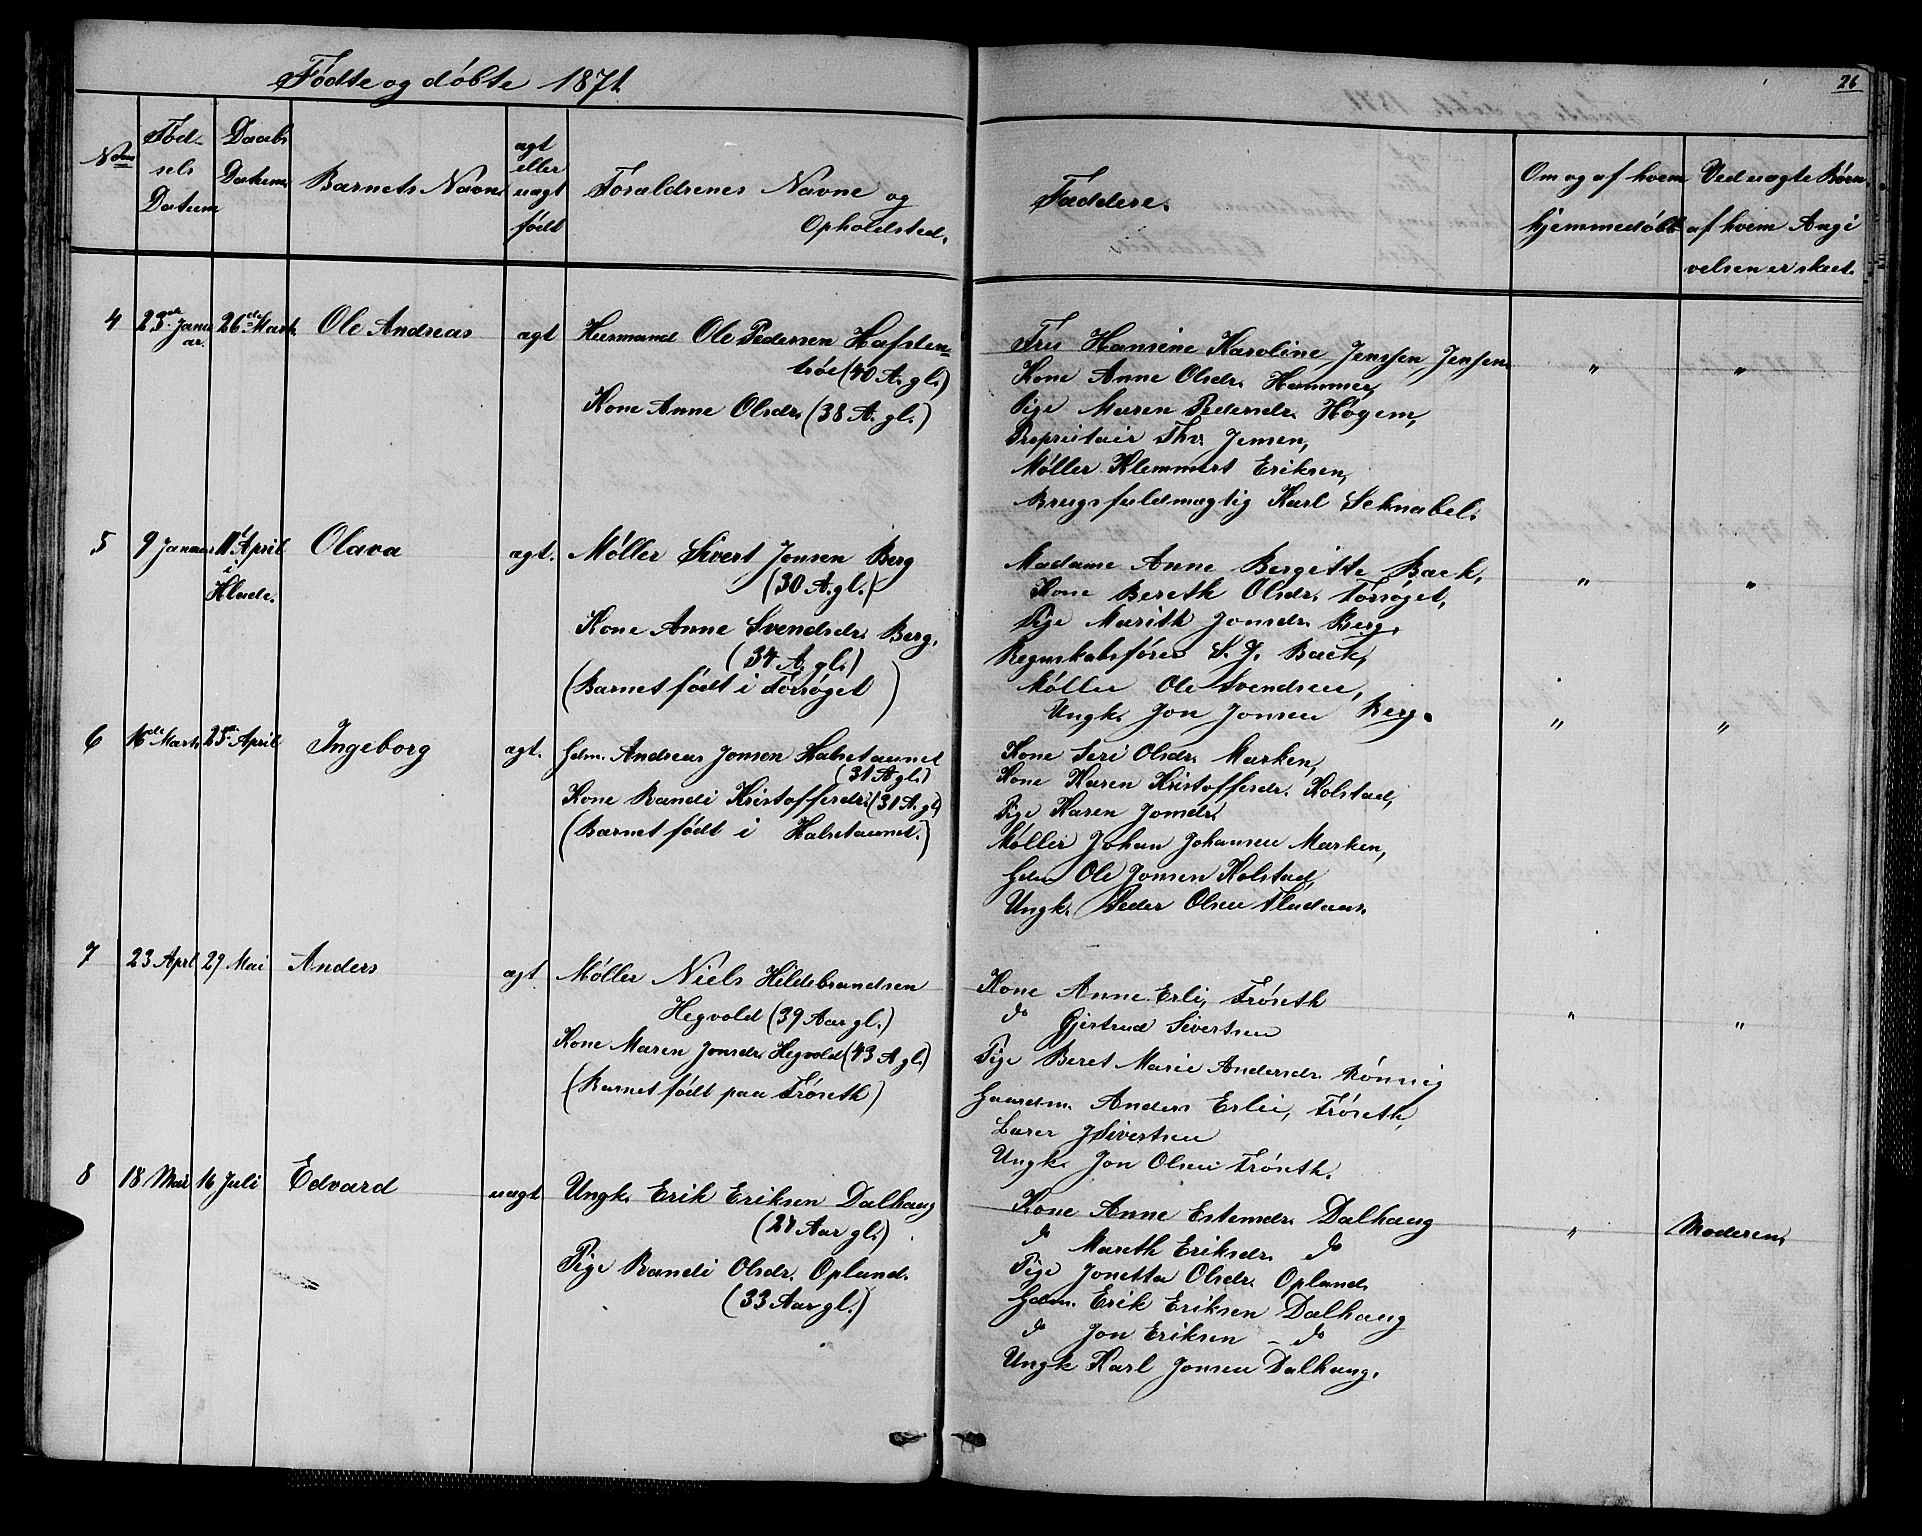 Fødte og døbte 1871
26
Nom
Fød-
sels
Datum
Daabs
Datum
Barnets Navne
ægt
eller
uægt
født
Forældrenes Navne og
Opholdsted.
Faddere.
Om og af hvem
hjemmedøbt
Ved uægte Børn
af hvem Angi
velsen er skeet.
4 23de Janu
ar. 26de Marts Ole Andreas ægt Huusmand Ole Pedersen Hafsten-
trøe (40 A. gl.)
Kone Anne Olsdr. (38 A. gl.)
Fru Hansine Karoline Jenssen Jenssen
Kone Anne Olsdr. Hammer,
Pige Maren Pedersdr. Høgem,
Proprietair Thv. Jensen,
Møller Klemmert Eriksen,
Brugsfuldmægtig Karl Schnabel.
" "
5 9 Januar 11 April
i
Hlade. Olava ægt. Møller Sivert Jonsen Berg
(30 A. gl.)
Kone Anne Svendsdr. Berg.
(34 A. gl.)
(Barnet født i Forsøget)
Madame Anne Bergitte Back,
Kone Bereth Olsdr. Forsøget,
Pige Marith Jonsdr. Berg.
Regnskabsfører S. J. Back,
Møller Ole Svendsen,
Ungk. Jon Jonsen Berg.
" "
6 16de Marts 23de April Ingeborg ægt. Gdm. Andreas Jonsen Halsetaunet
(31 A gl.)
Kone Randi Kristoffersdr. (31 A. gl.)
(Barnet født i Halsetaunet.)
Kone Seri Olsdr. Marken,
Kone Karen Kristoffersdr. Kolstad,
Pige Karen Jonsdr.
Møller Johan Johansen Marken,
Gdm Ole Jonsen Kolstad,
Ungk. Peder Olsen Fladaas.
" "
7 23 Aprl 29 Mai Anders ægt Møller Niels Hildebrandsen
Hegvold (39 Aar gl.)
Kone Maren Jonsdr. Hegvold (43 A gl.)
(Barnet født paa Frøseth)
Kone Anne Erli, Frøseth
do Gjertrud Sivertsen
Pige Beret Marie Andersdr. Rønnig
Gaardm. Anders Erlie, Frøseth,
Lærer J Sivertsen
Ungk. Jon Olsen Frøseth.
" "
8 18 Mai 16 Juli Edvard uægt Ungk. Erik Eriksen Dalhaug
(27 Aar gl.)
Pige Randi Olsdr. Opland.
(33 Aar gl.)
Kone Anne Estensdr. Dalhaug
do Mareth Eriksdr. do
Pige Jonetta Olsdr. Opland.
Gdm. Erik Eriksen Dalhaug
do Jon Eriksen – do
Ungk Karl Jonsen Dalhaug.
" Moderen.